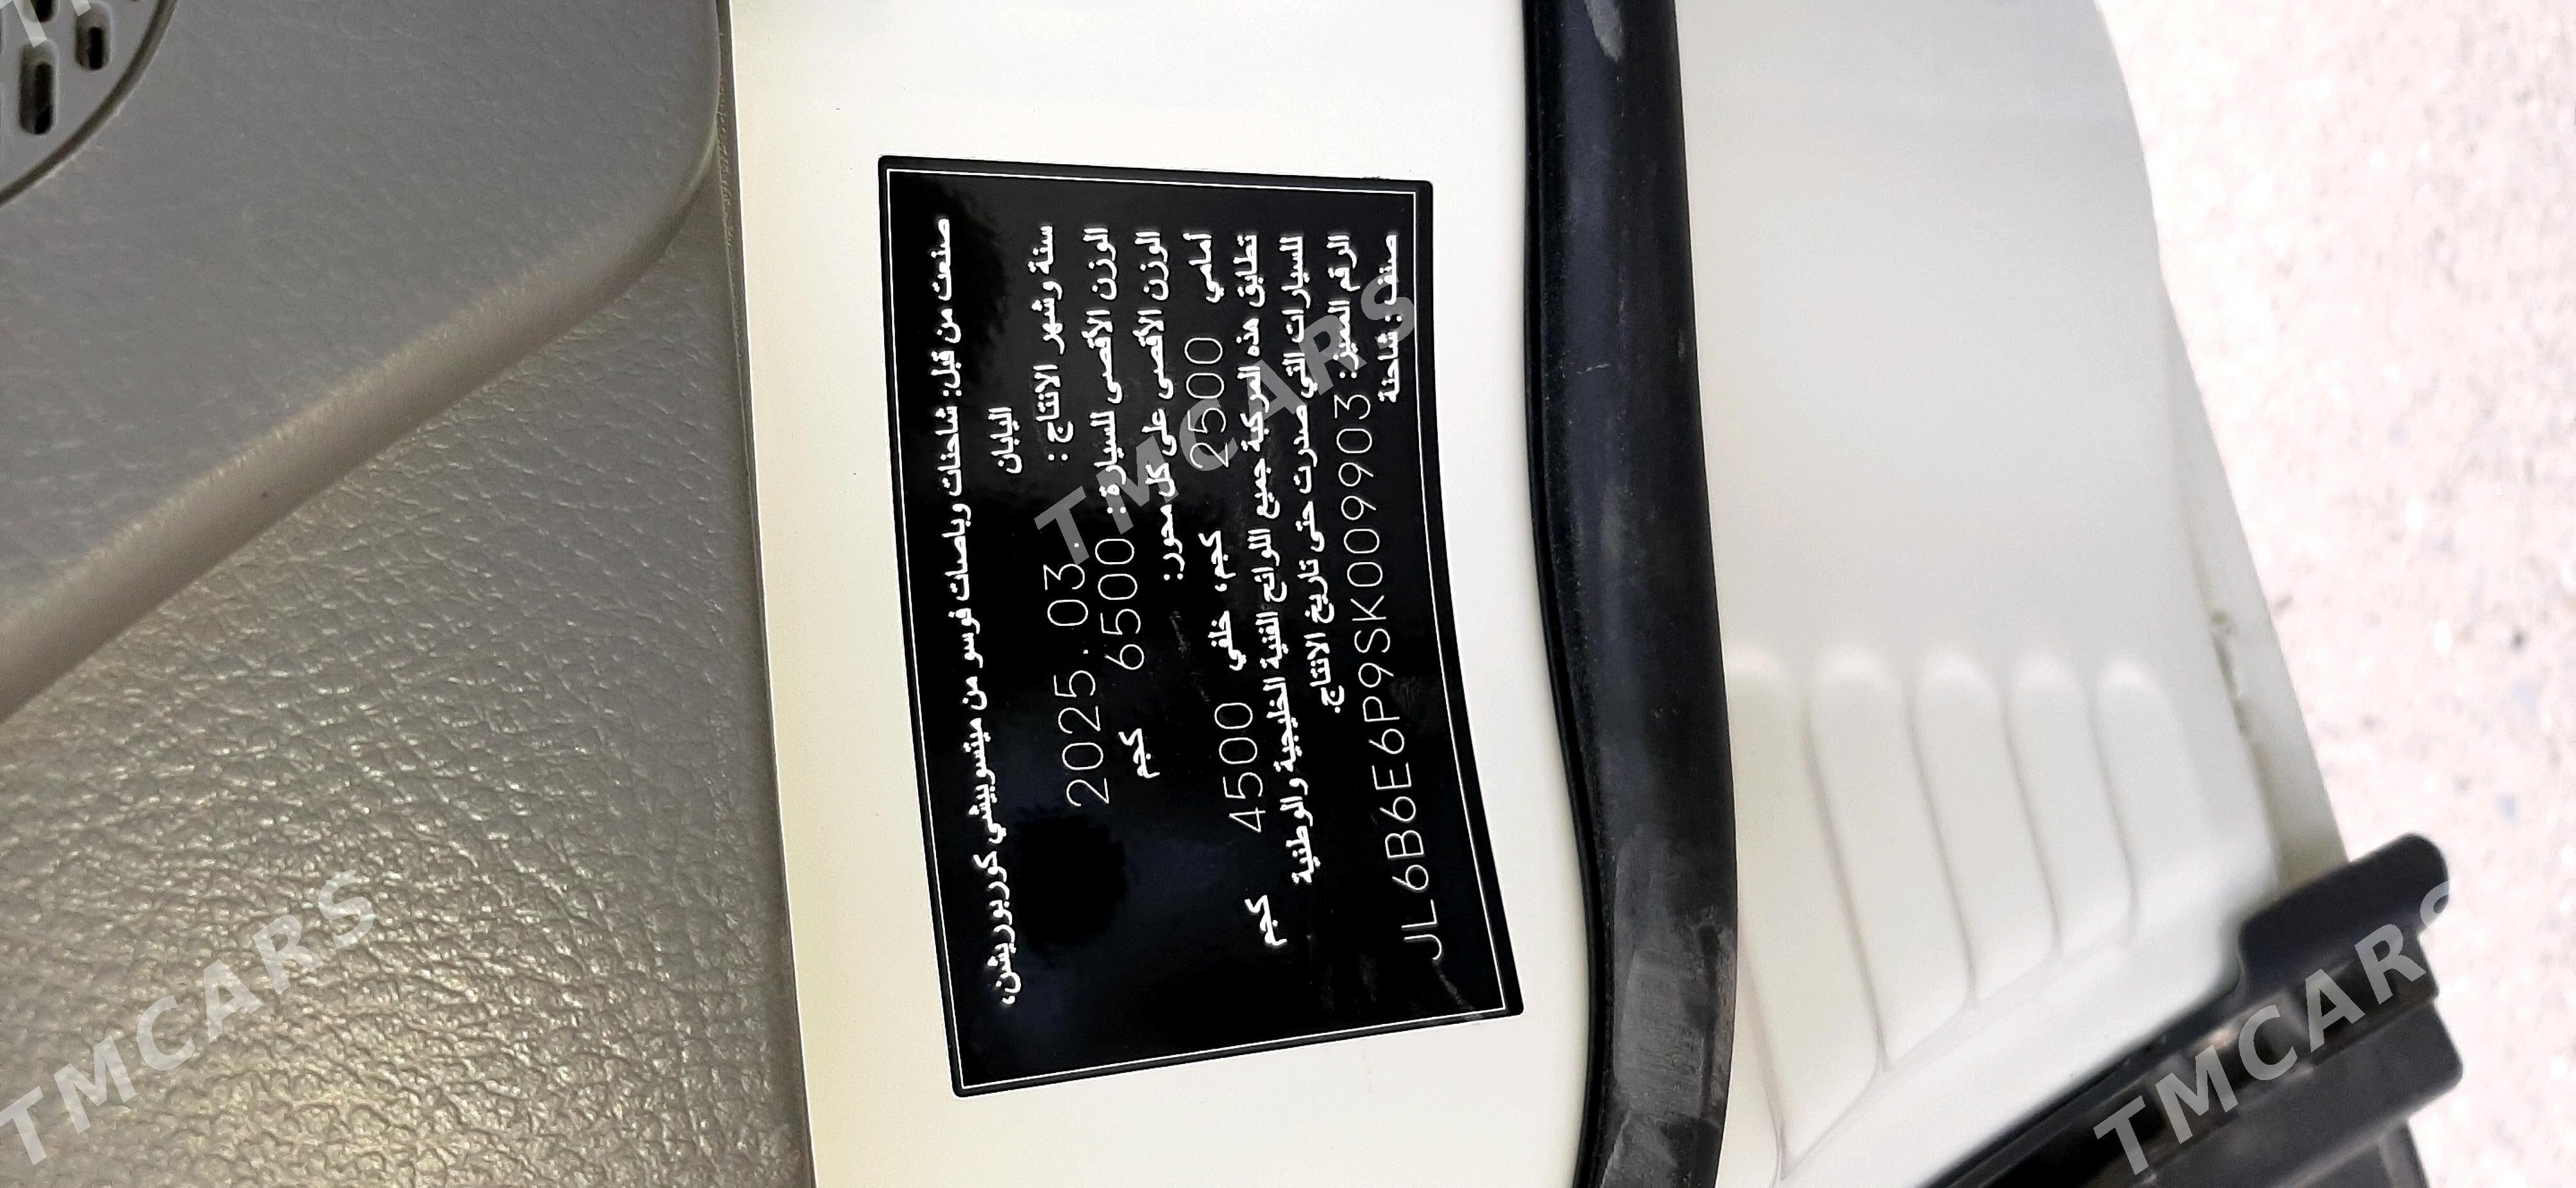 صنعت من قبل: شاحنات وباصات فوسو من ميتسوبيشي كوربوريشن،
اليابان
سنة وشهر الانتاج: 2025.03.
الوزن الأقصى للسيارة: 6500 كجم
الوزن الأقصى على كل محور:
أمامي 2500 كجم، خلفي 4500 كجم
تطابق هذه المركبة جميع اللوائح الفنية الخليجية والوطنية
للسيارات التي صدرت حتى تاريخ الانتاج.
الرقم المميز: JL6B6E6P9SK009903
صنف: شاحنة
TMCARS
TMCARS
TMCARS